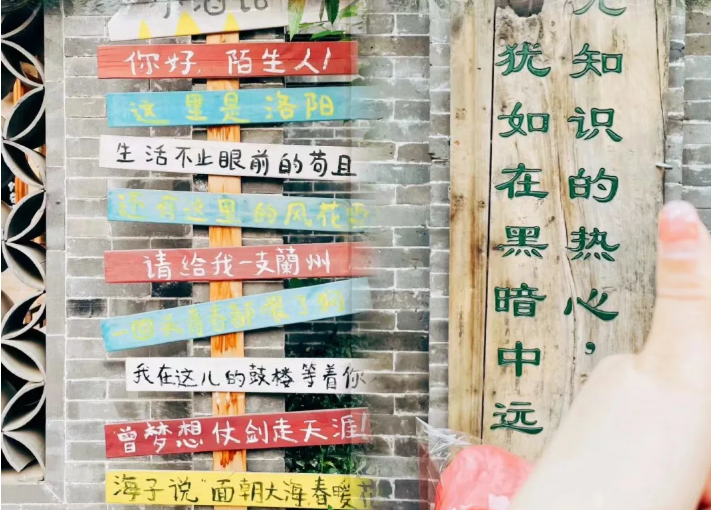 你好,陌生人!
这里是洛阳
生活不止眼前的苟且
还有这里的风花雪
请给我一支蘭州
我在这儿的鼓楼等着你
曾梦想仗剑走天涯!
海子说"面朝大海,春暖
无知识的热心,
犹如在黑暗中远